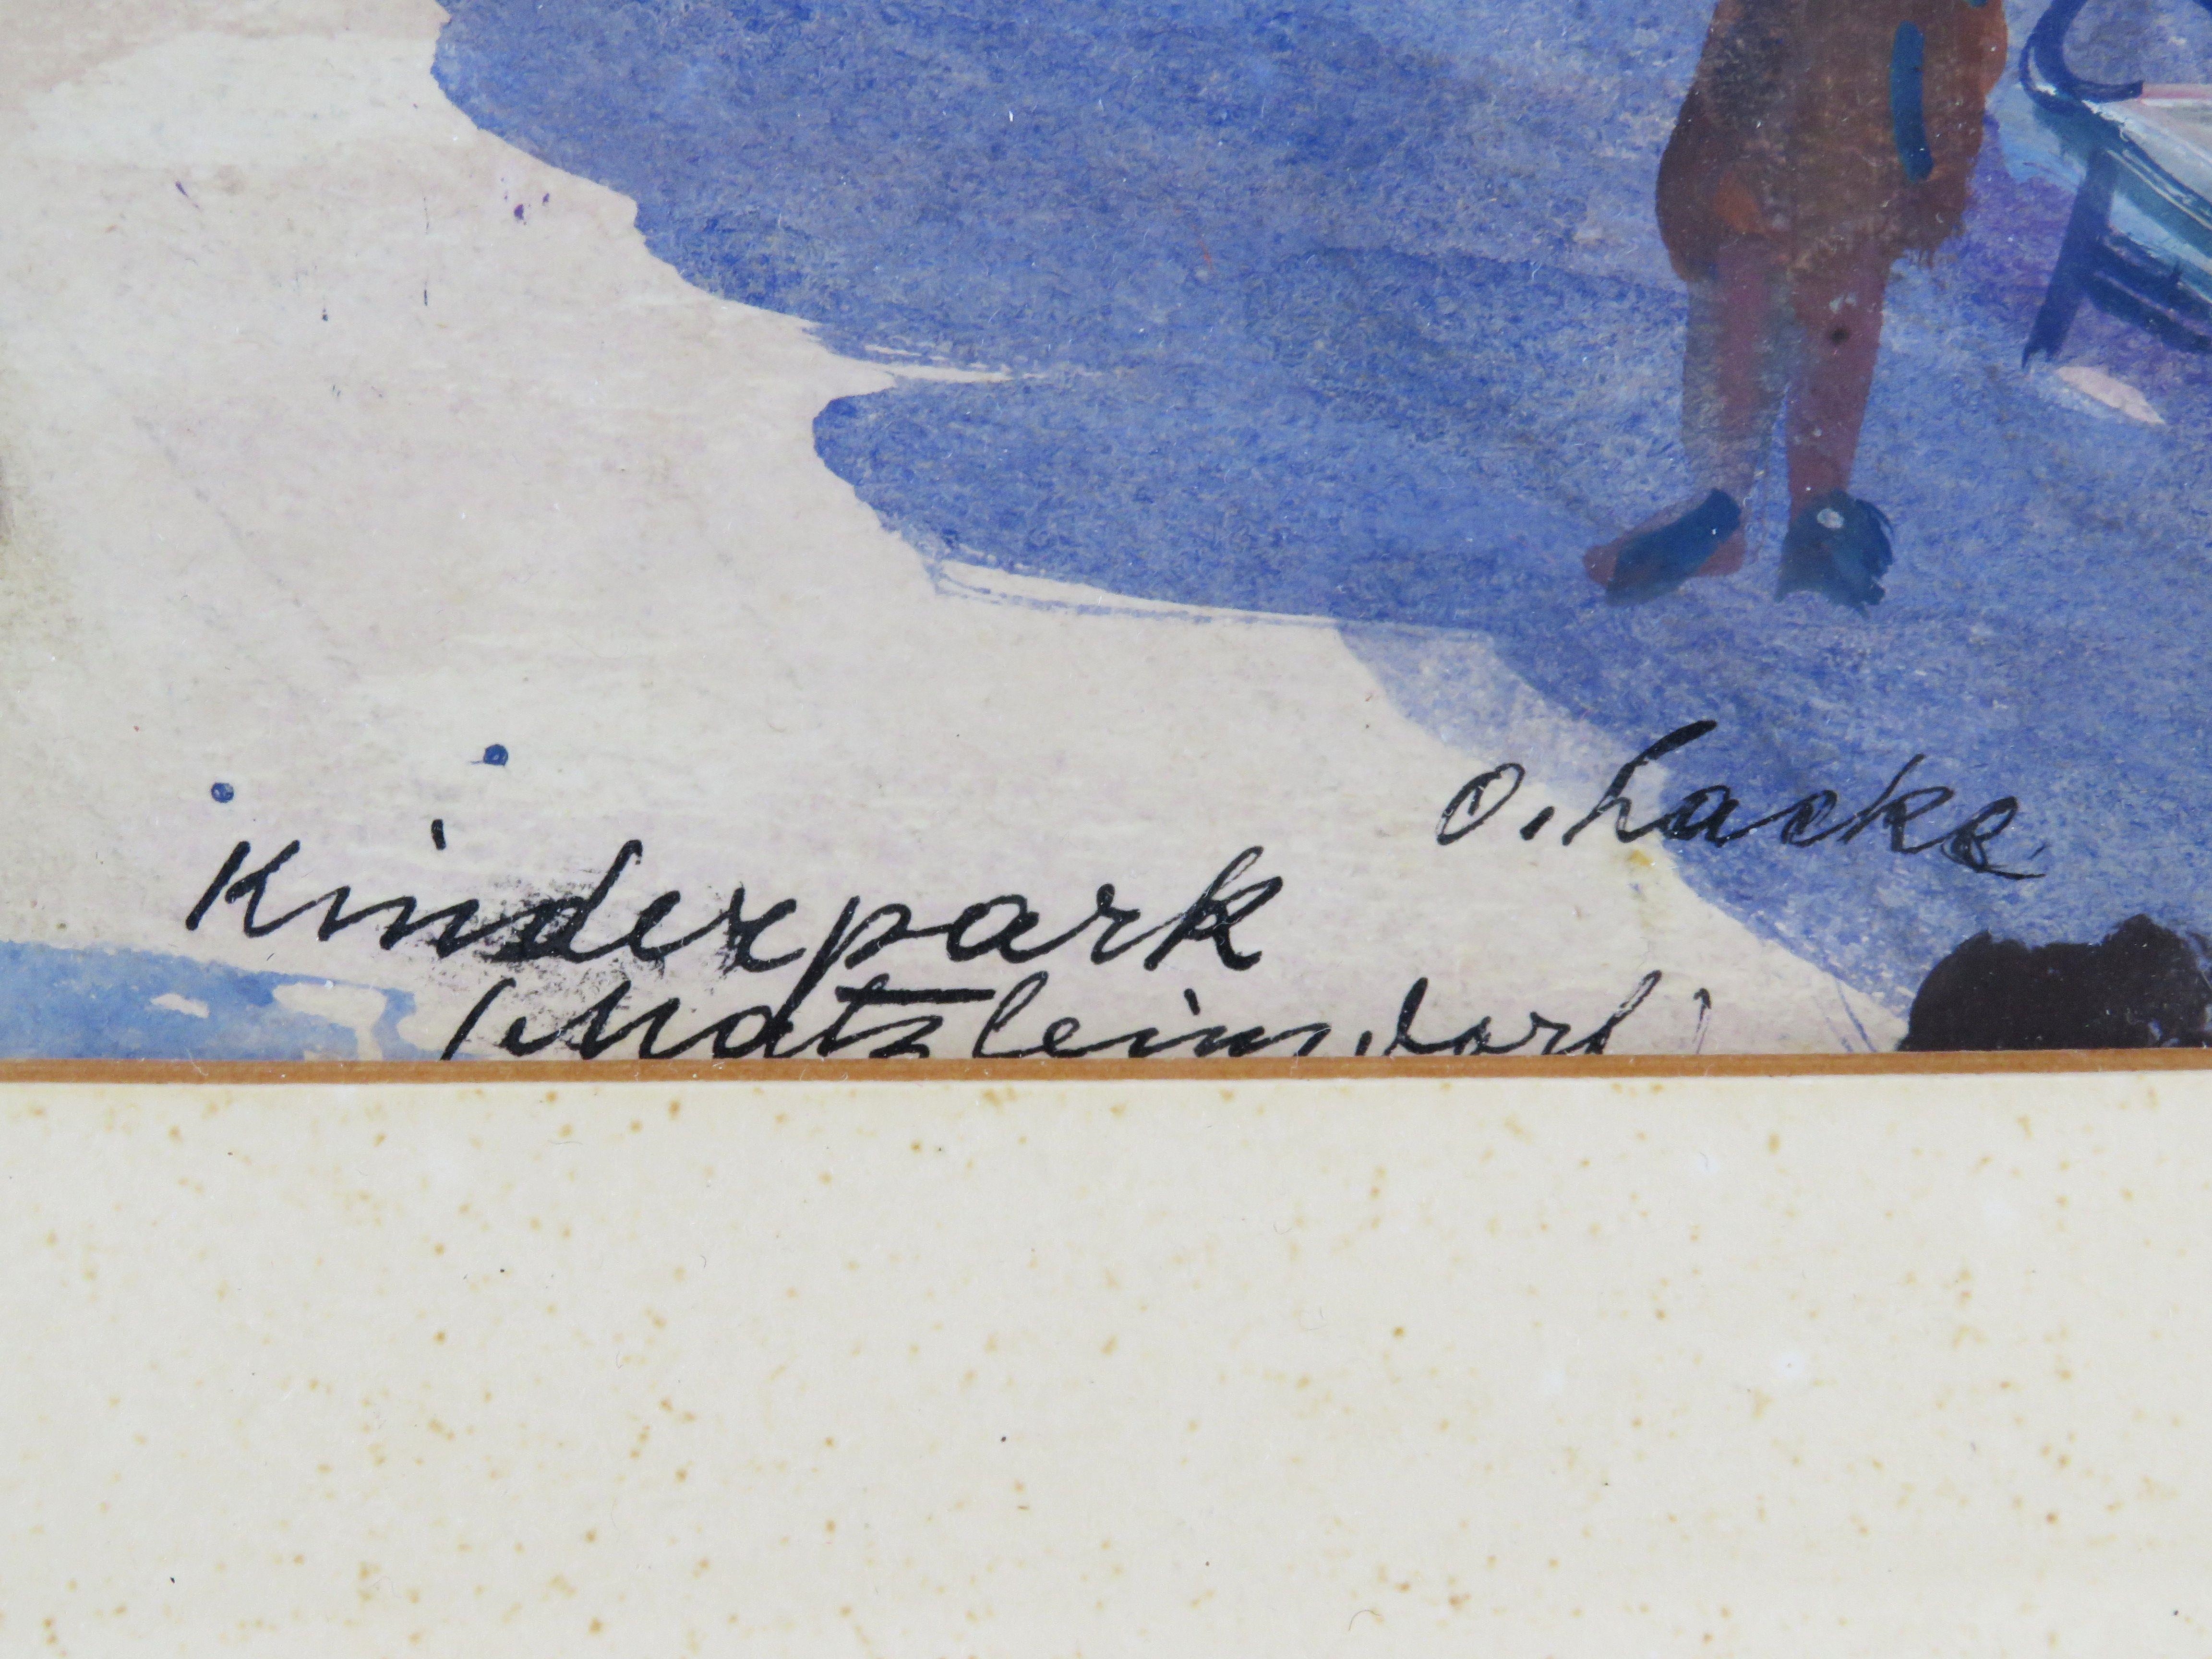 O. Lacke
Kinderpark
(Matzleinsdorf)